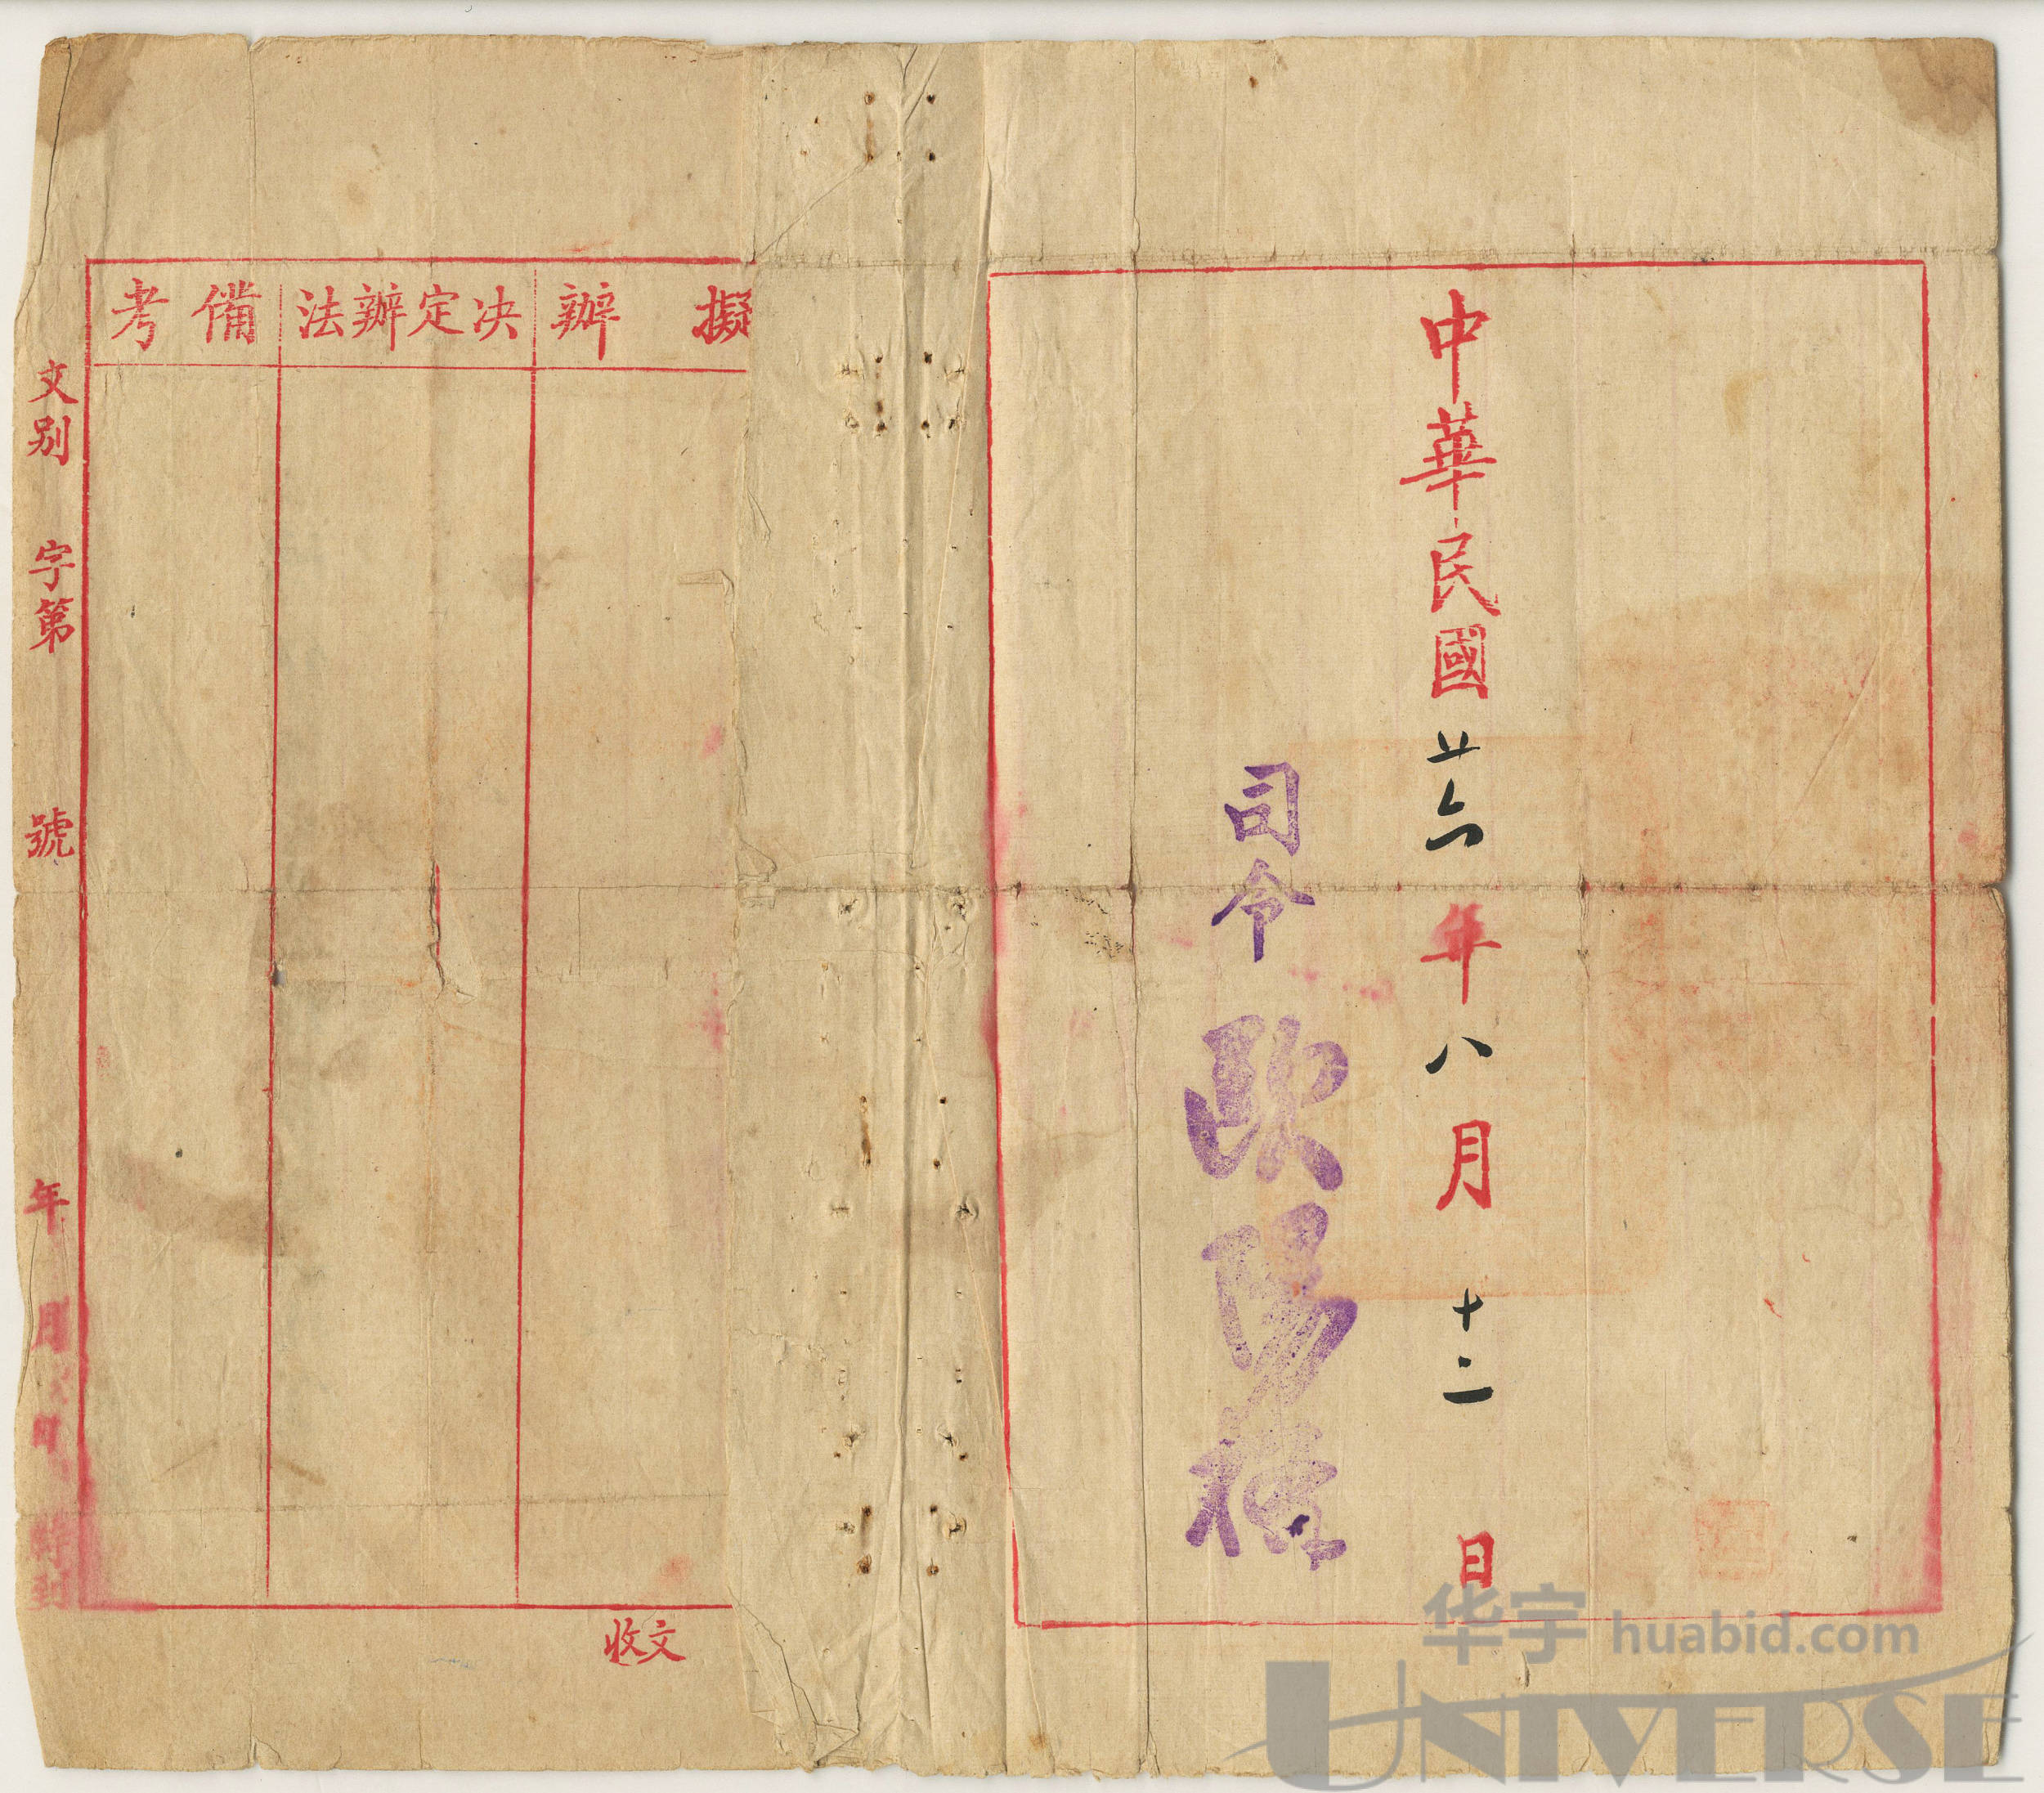 中華民國廿六年八月十二日
司令 歐陽
擬辦
決定辦法
備考
收文
文別 字第 號 年 月 時到
华宇 huabid.com
UNIVERSE